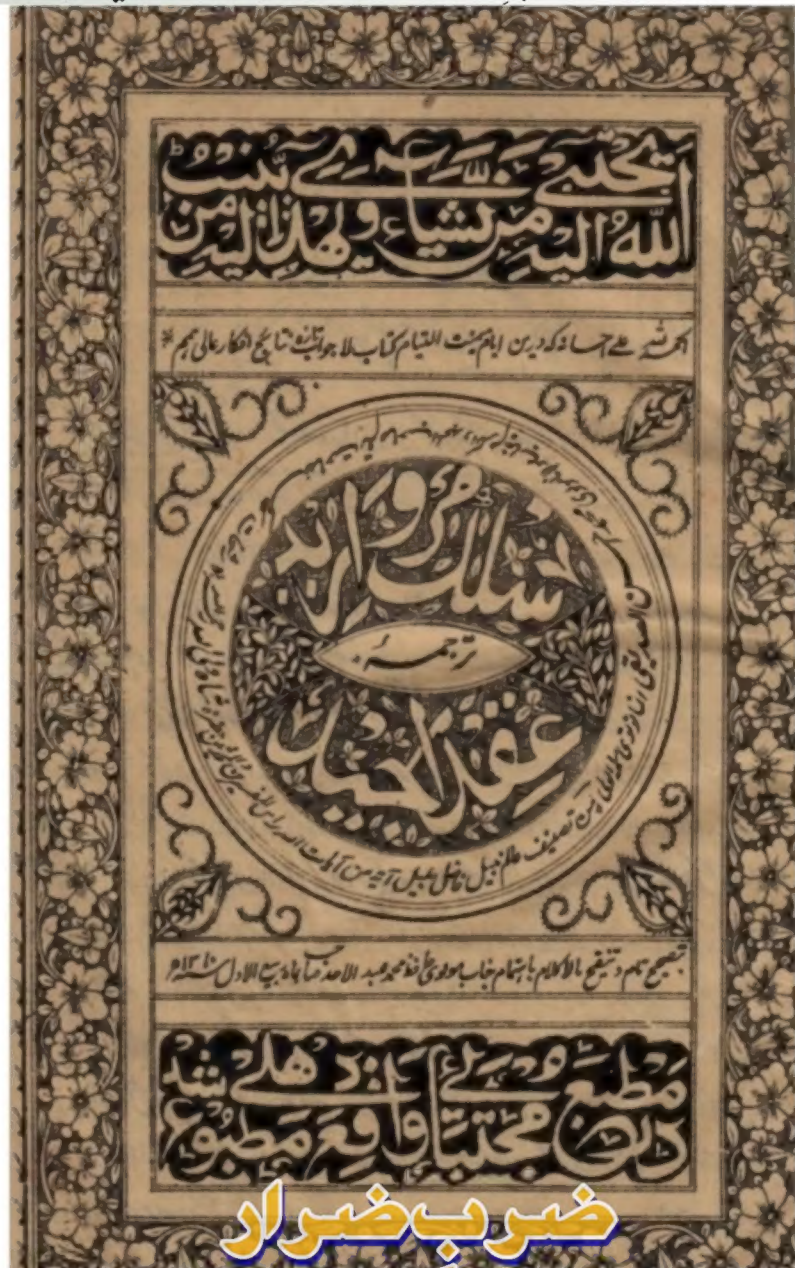 اللهُ يجتبي اليهِ من يشاء ويهدي اليه من ينيب
الحمد لله علے احسانه که درین ایام میمنت التیام کتاب لاجواب تازه نتایج افکار عالی همم
سلك مروارید
ترجمهٔ
عقد الجید
من تصنیف عالم نبیل فاضل جلیل آیة من آیات الله
بتصحیح تام و تنقیح مالاکلام باهتمام جناب مولوی حافظ محمد عبد الاحد صاحب بماه ربیع الاول سنه ۱۳۱۰ه
در مطبع مجتبائی واقع دهلے مطبوع شد
ضربِ ضرار